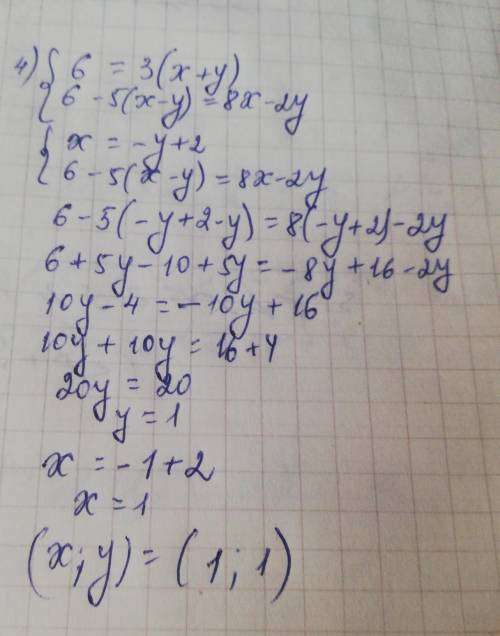 4) { 6 = 3(x+y)
{ 6 - 5(x-y) = 8x - 2y
{ x = -y+2
{ 6 - 5(x-y) = 8x - 2y
6 - 5(-y+2-y) = 8(-y+2) - 2y
6 + 5y - 10 + 5y = -8y + 16 - 2y
10y - 4 = -10y + 16
10y + 10y = 16 + 4
20y = 20
y = 1
x = -1 + 2
x = 1
(x; y) = (1; 1)